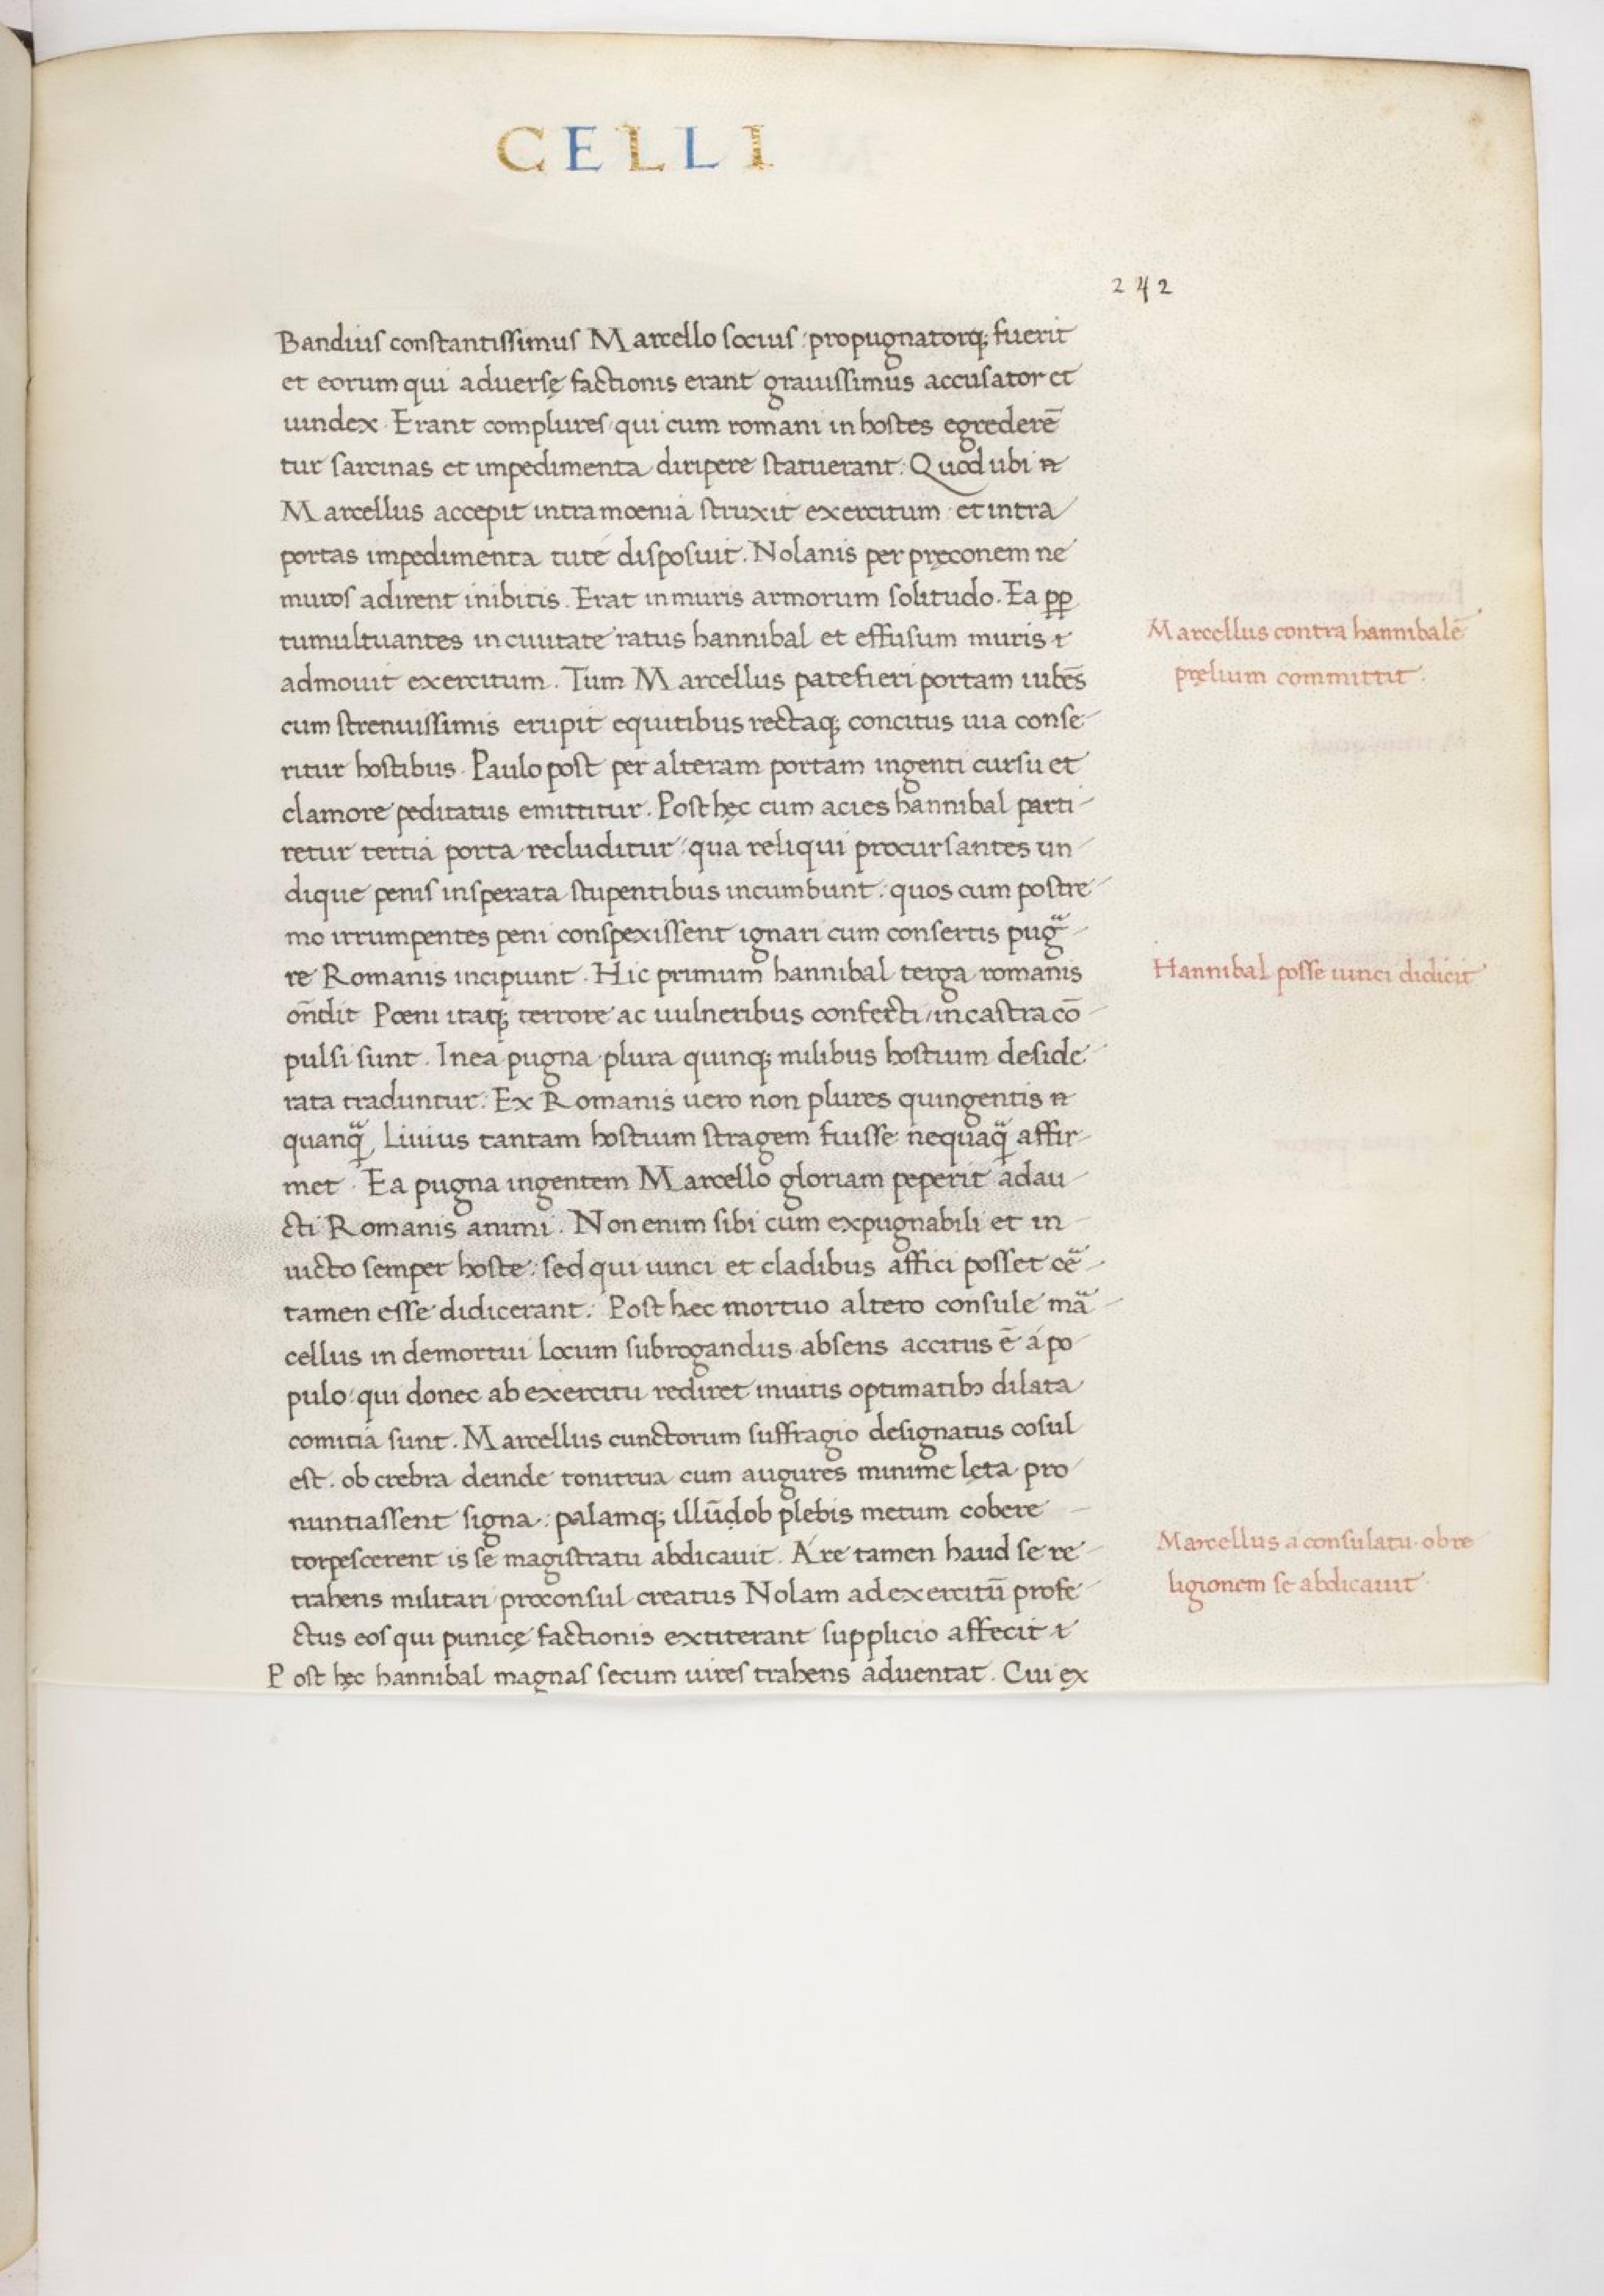 CELLI
242
Bandius constantissimus Marcello socius: propugnatorq; fuerit
et eorum qui aduersę factionis erant grauissimus accusator et
uindex. Erant complures qui cum romani in hostes egrederē
tur sarcinas et impedimenta diripere statuerant. Quod ubi
Marcellus accepit intra mœnia struxit exercitum et intra
portas impedimenta tute disposuit. Nolanis per pręconem ne
muros adirent inibitis. Erat in muris armorum solitudo. Ea pp
tumultuantes in ciuitate ratus hannibal et effusum muris
admouit exercitum. Tum Marcellus patefieri portam iubēs
cum strenuissimis erupit equitibus rectaq; concitus uia conse
ritur hostibus. Paulo post per alteram portam ingenti cursu et
clamore peditatus emittitur. Post hęc cum acies hannibal parti
retur tertia porta recluditur: qua reliqui procursantes un
dique penis insperata stupentibus incumbunt: quos cum postre
mo irrumpentes peni conspexissent ignari cum consertis pugᵃ
re Romanis incipiunt. Hic primum hannibal terga romanis
on̄dit Pœni itaq; terrore ac uulneribus confecti/in castra cō
pulsi sunt. In ea pugna plura quinq; milibus hostium deside
rata traduntur. Ex Romanis uero non plures quingentis
quanq̄ᵃ Liuius tantam hostium stragem fuisse nequaq̄ᵃ affir
met. Ea pugna ingentem Marcello gloriam peperit adau
cti Romanis animi. Non enim sibi cum expugnabili et in
uicto semper hoste: sed qui uinci et cladibus affici posset ceᵃ
tamen esse didicerant. Post hec mortuo altero consule maᵃ
cellus in demortui locum subrogandus absens accitus ē a po
pulo: qui donec ab exercitu rediret inuitis optimatibꝫ dilata
comitia sunt. Marcellus cunctorum suffragio designatus cosul
est. ob crebra deinde tonitrua cum augures minime lęta pro
nuntiassent signa: palamq; illūd ob plebis metum cobere
torpescerent is se magistratu abdicauit. A re tamen haud se re
trahens militari proconsul creatus Nolam ad exercitū profe
ctus eos qui punicę factionis extiterant supplicio affecit
Post hęc hannibal magnas secum uires trahens aduentat. Cui ex
Marcellus contra hannibalē
pręlium committit.
Hannibal posse uinci didicit
Marcellus a consulatu ob re
ligionem se abdicauit.